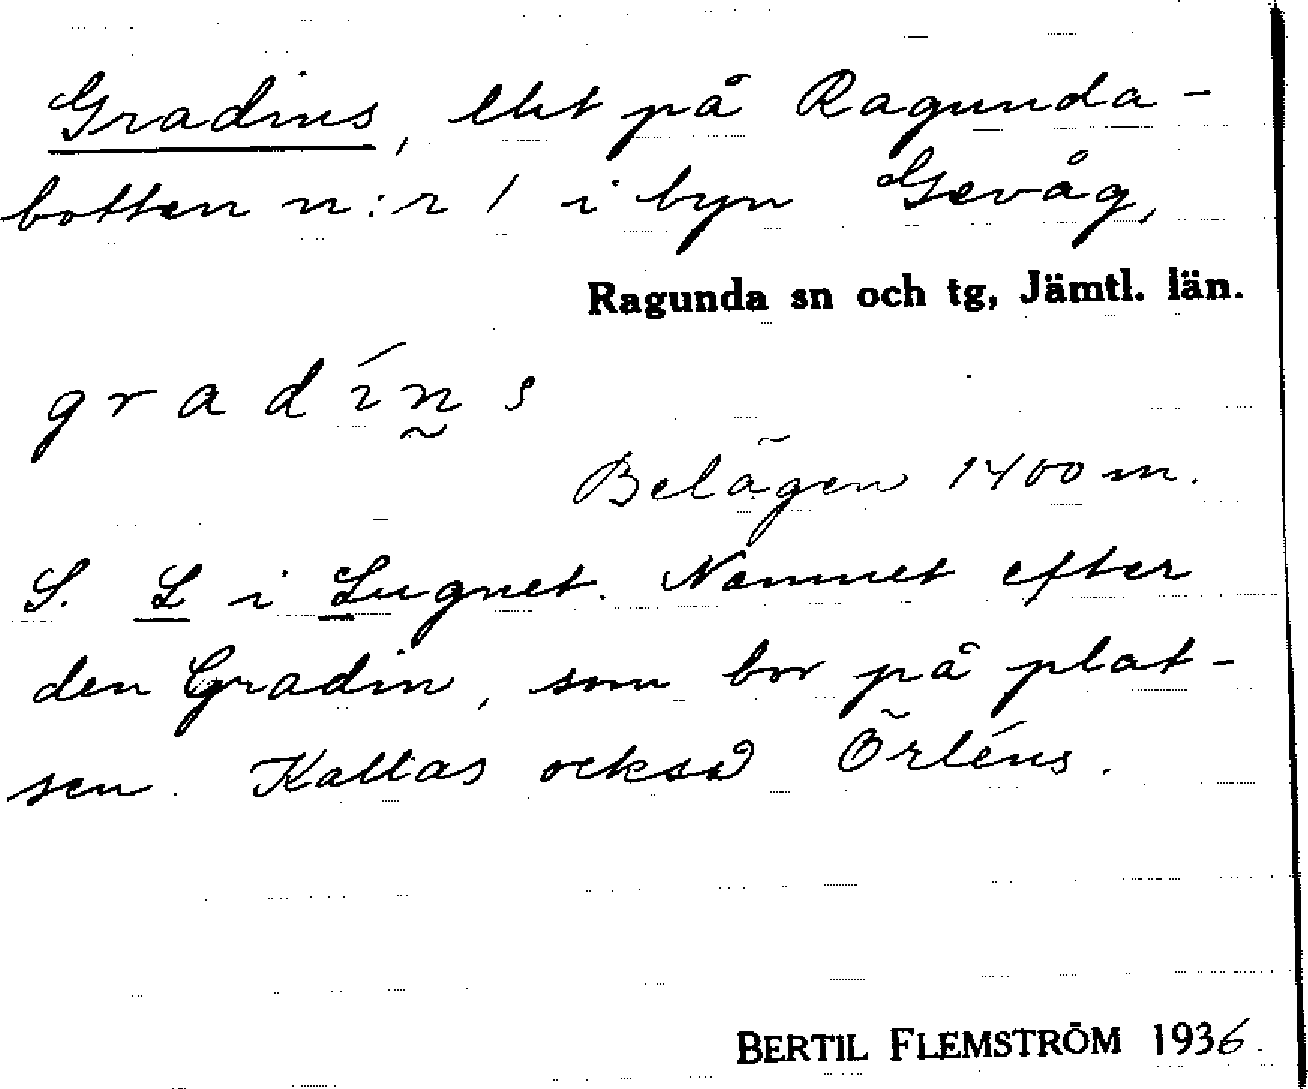 Gradins, lht på Ragunda-
botten n:r 1 i byn Gevåg,
Ragunda sn och tg, Jämtl. län.
gradí̃n̰s
Belägen 1400 m.
S. L i Lugnet. Namnet efter
den Gradin, som bor på plat-
sen. Kallas också Örléns.
BERTIL FLEMSTRÖM 1936.